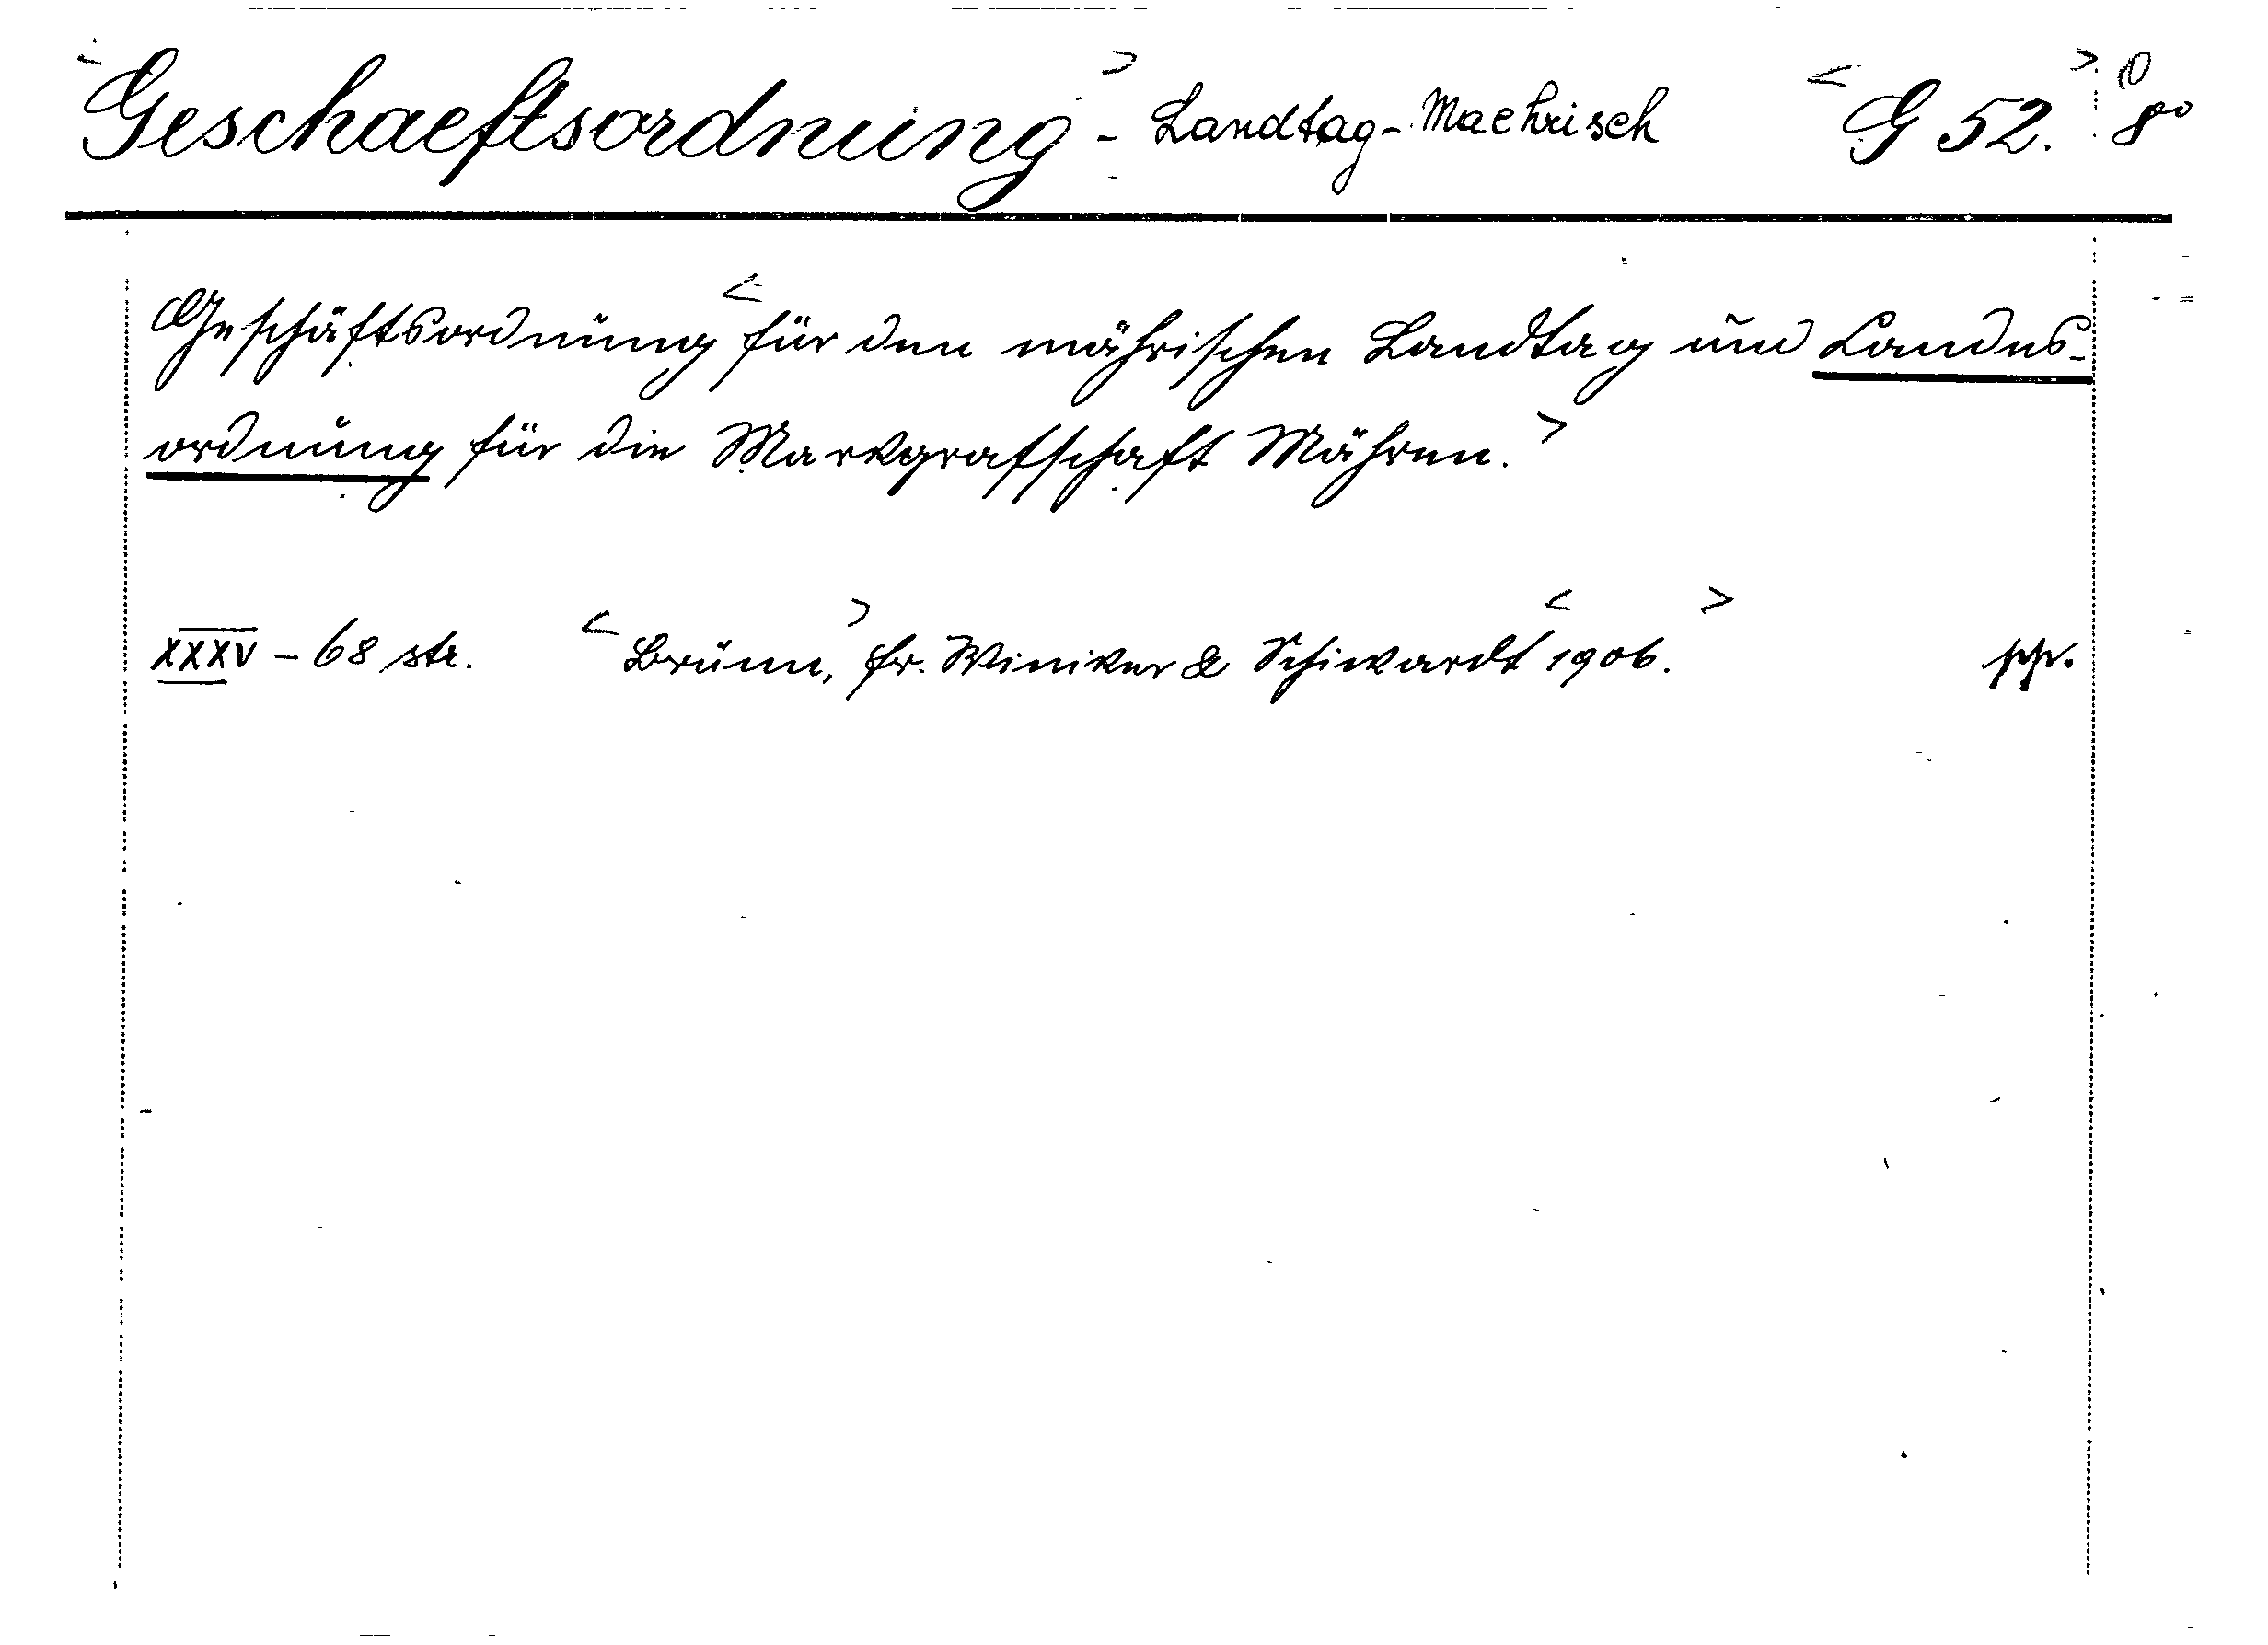 Geschaeftsordnung - Landtag - Maehrisch G 52. 8°
Geschäftsordnung für den mährischen Landtag und Landes-
ordnung für die Markgrafschaft Mähren.
XXXV - 68 str. Brünn, Fr. Winiker & Schikardt 1906.